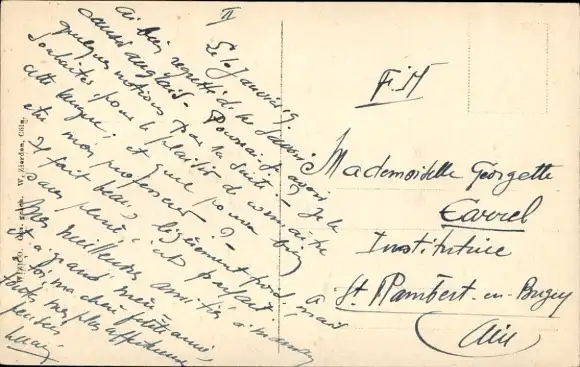 IV
Le 1 Janvier 19.
ai bien regretté de ne savoir
causer anglais. Pourrai-je avoir
quelques notions par la suite - Je le
souhaites pour le plaisir de connaître
cette langue; et que pourra bien
être mon professeur ? -
Il fait beau, légèrement froid, mais
sans pluie; c'est parfait
Mes meilleures amitiés à maman
et à grand mère
toi, ma chère
toutes mes plus affectueuses
pensées
F. M
Mademoiselle Georgette
Carrel
Institutrice
St Rambert-en-Bugey
(Ain)
W. Zierden, Cöln.